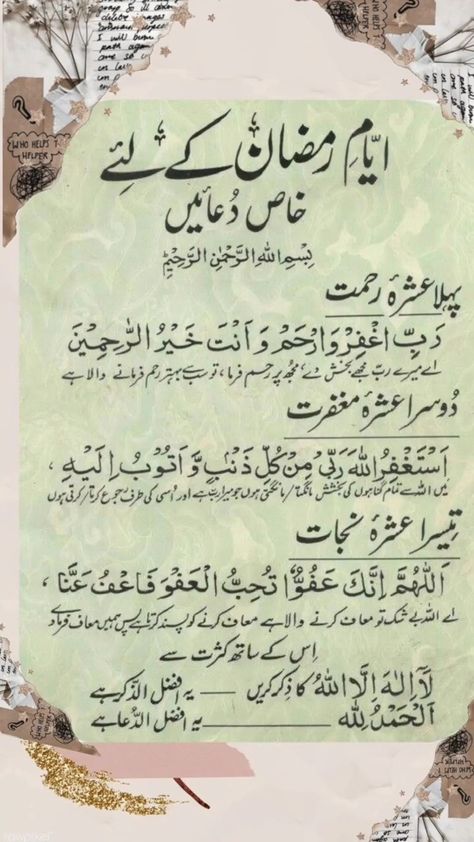 ایّامِ رمضان کے لئے
خاص دُعائیں
بِسْمِ اللهِ الرَّحْمٰنِ الرَّحِيْمِ
پہلا عشرۂ رحمت
رَبِّ اغْفِرْ وَارْحَمْ وَاَنْتَ خَيْرُ الرّٰحِمِيْنَ
اے میرے رب مجھے بخش دے، مجھ پر رحم فرما، تو سب سے بہتر رحم فرمانے والا ہے
دُوسرا عشرۂ مغفرت
اَسْتَغْفِرُ اللهَ رَبِّیْ مِنْ كُلِّ ذَنْۢبٍ وَّاَتُوْبُ اِلَيْهِ ،
میں اللہ سے تمام گناہوں کی بخشش مانگتا/مانگتی ہوں جو میرا رب ہے اور اُسی کی طرف رجوع کرتا/کرتی ہوں
تیسرا عشرۂ نجات
اَللّٰهُمَّ اِنَّكَ عَفُوٌّ تُحِبُّ الْعَفْوَ فَاعْفُ عَنَّا ،
اے اللہ بے شک تو معاف کرنے والا ہے معاف کرنے کو پسند کرتا ہے پس ہمیں معاف فرما دے
اِس کے ساتھ کثرت سے
لَآ اِلٰهَ اِلَّا اللهُ کا ذِکر کریں — یہ افضل الذّکر ہے
اَلْحَمْدُ لِلّٰهِ — یہ افضل الدُّعا ہے
WHO HELPS T
HELPER
rawpixel